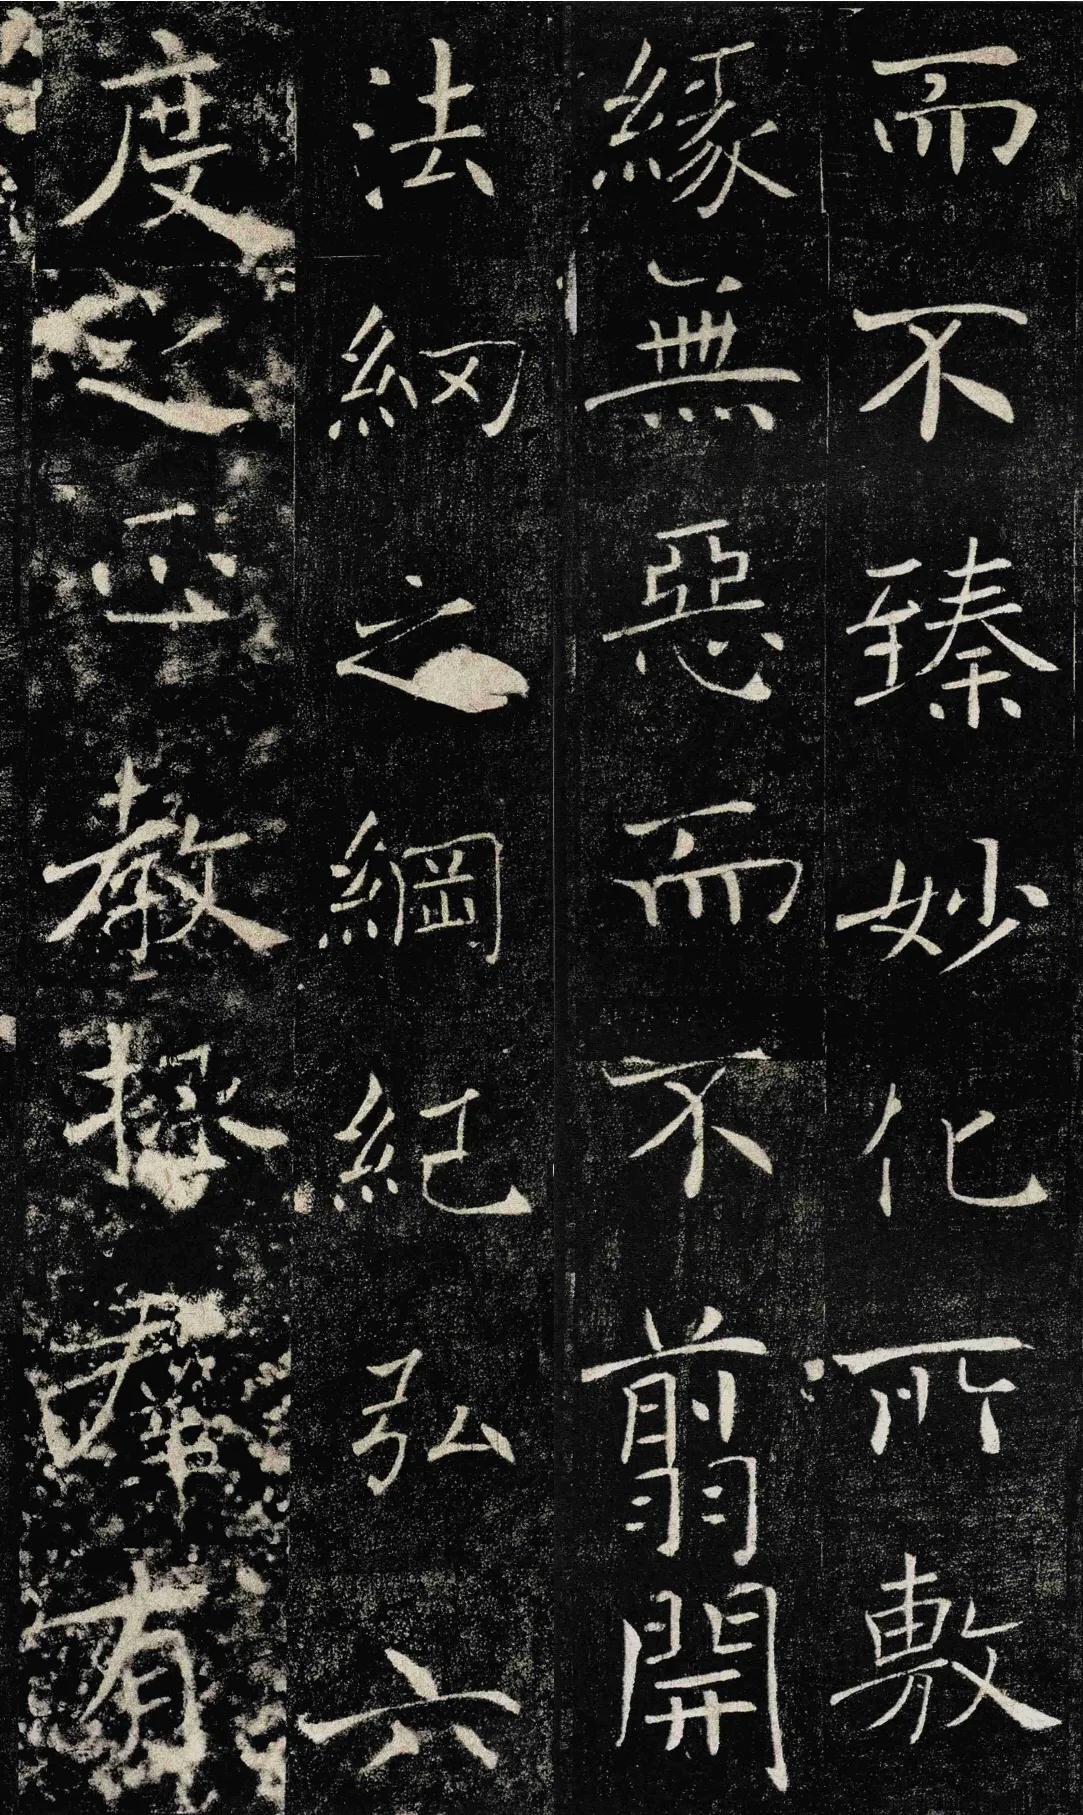 而不臻妙化所敷
緣無惡而不翦開
法網之綱紀弘六
度之正教拯群有